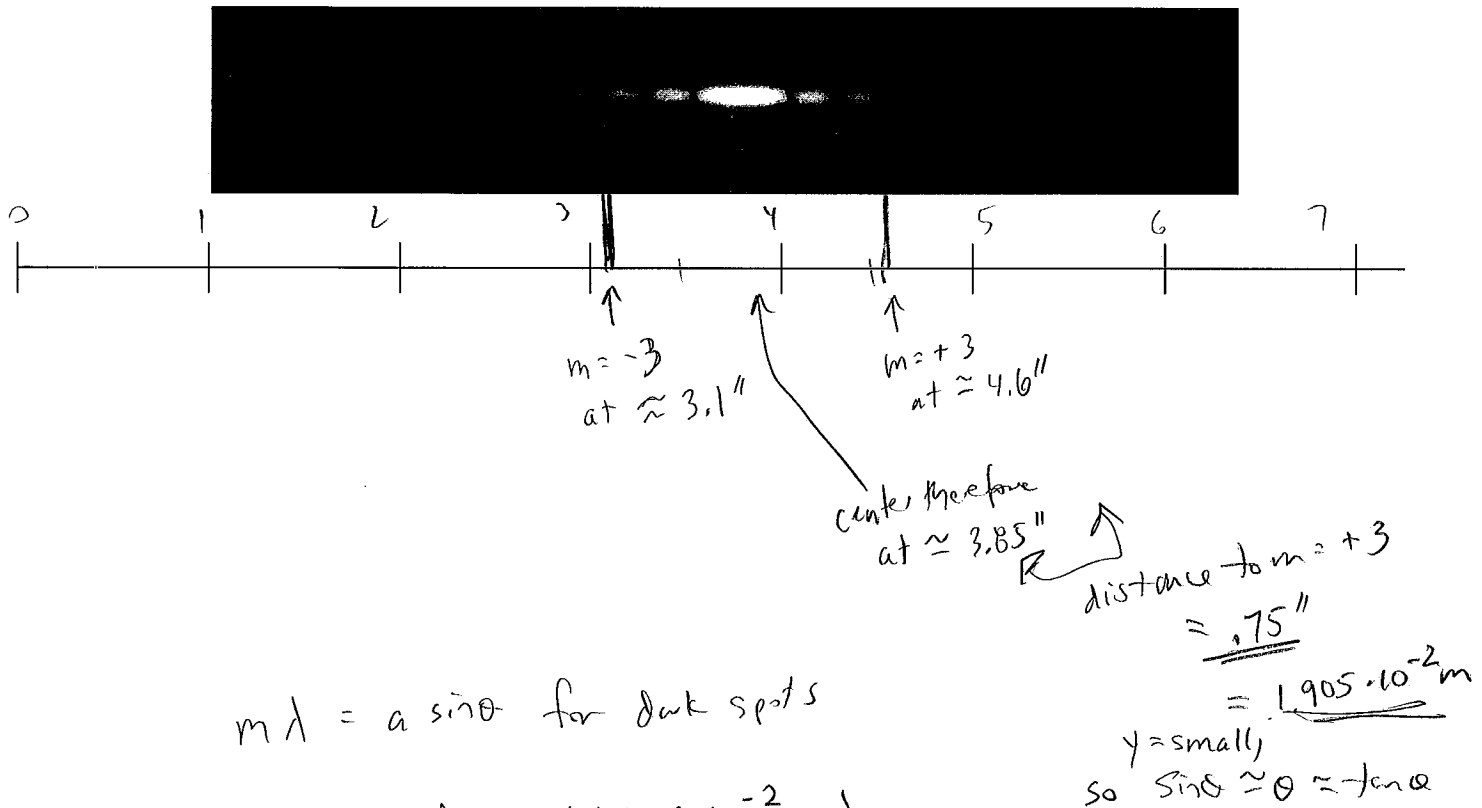 0 1 2 3 4 5 6 7
m = -3
at ≈ 3.1"
m = +3
at ≃ 4.6"
center therefore
at ≃ 3.85"
distance to m = +3
= .75"
= 1.905·10⁻² m
mλ = a sinθ for dark spots
y = small,
so sinθ ≃ θ ≃ tanθ
-2